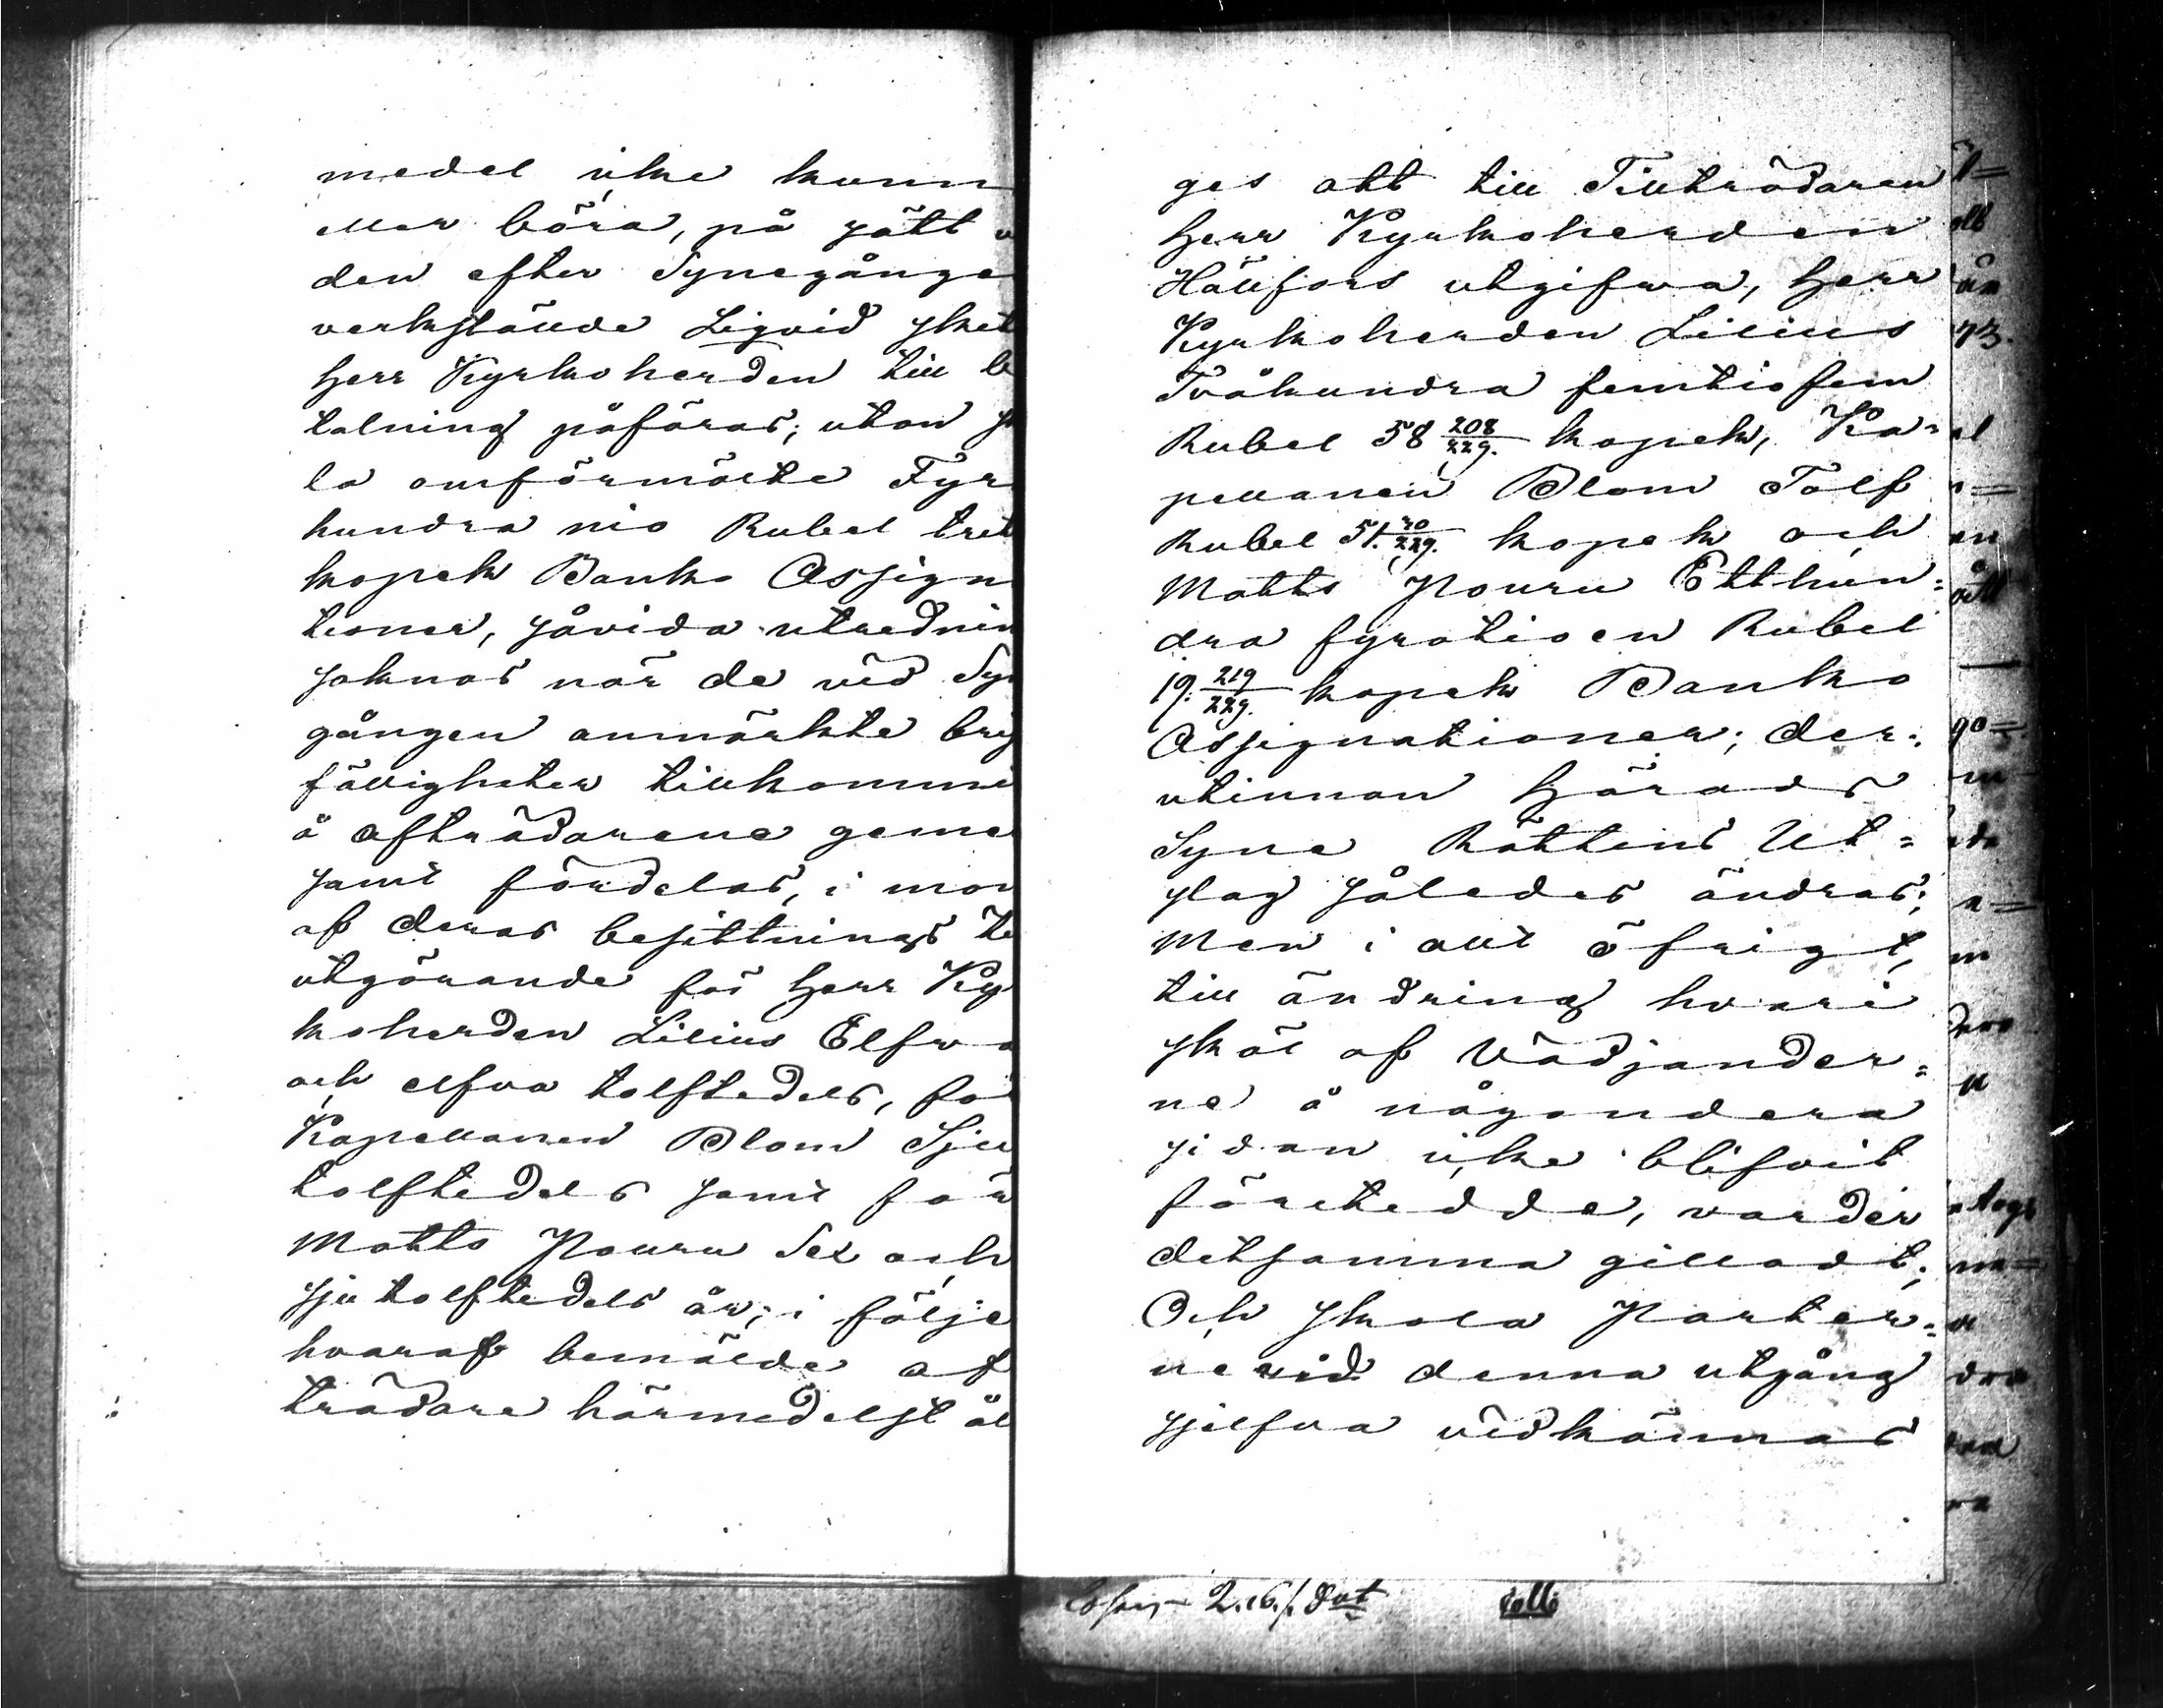 medel icke kunn
eller böra, på sätt
den efter Synegånge
verkstälde Liqvid sket
Herr Kyrkoherden till be
talning påföras; utan s
la omförmälte Fyr
hundra nio Rubel tret
kopek Banko Assign
tioner, såvida utrednin
saknas när de vid Syn
gången anmärkte bris
fälligheter tillkommi
å afträdarene geme
samt fördelas, i mon
af deras besittnings ti
utgörande för Herr Ky
koherden Lilius Elfva
och elfva tolftedels, för
Kapellanen Blom Sju
tolftedels samt för
Matts Pouru Sex och
sju tolftedels år; i följe
hvaraf bemälde af
trädare härmedelst ål
ges att till Tillträdaren
Herr Kyrkoherden
Hällfors utgifva, Herr
Kyrkoherden Lilius
Tvåhundra femtiofem
Rubel 58 208/229. kopek, Ka=
pellanen Blom Tolf
Rubel 51. 30/229. kopek och
Matts Pouru Etthun=
dra fyratioen Rubel
19. 219/229. kopek Banko
Assignationer; der=
utinnan Härads
Syne Rättens Ut=
slag således ändras;
Men i allt öfrigt,
till ändring hvari
skäl af Vädjander=
ne å någondera
sidan icke blifvit
företedde, varder
detsamma gilladt;
Och skola Parter=
ne vid denna utgång
sjelfva vidkännas